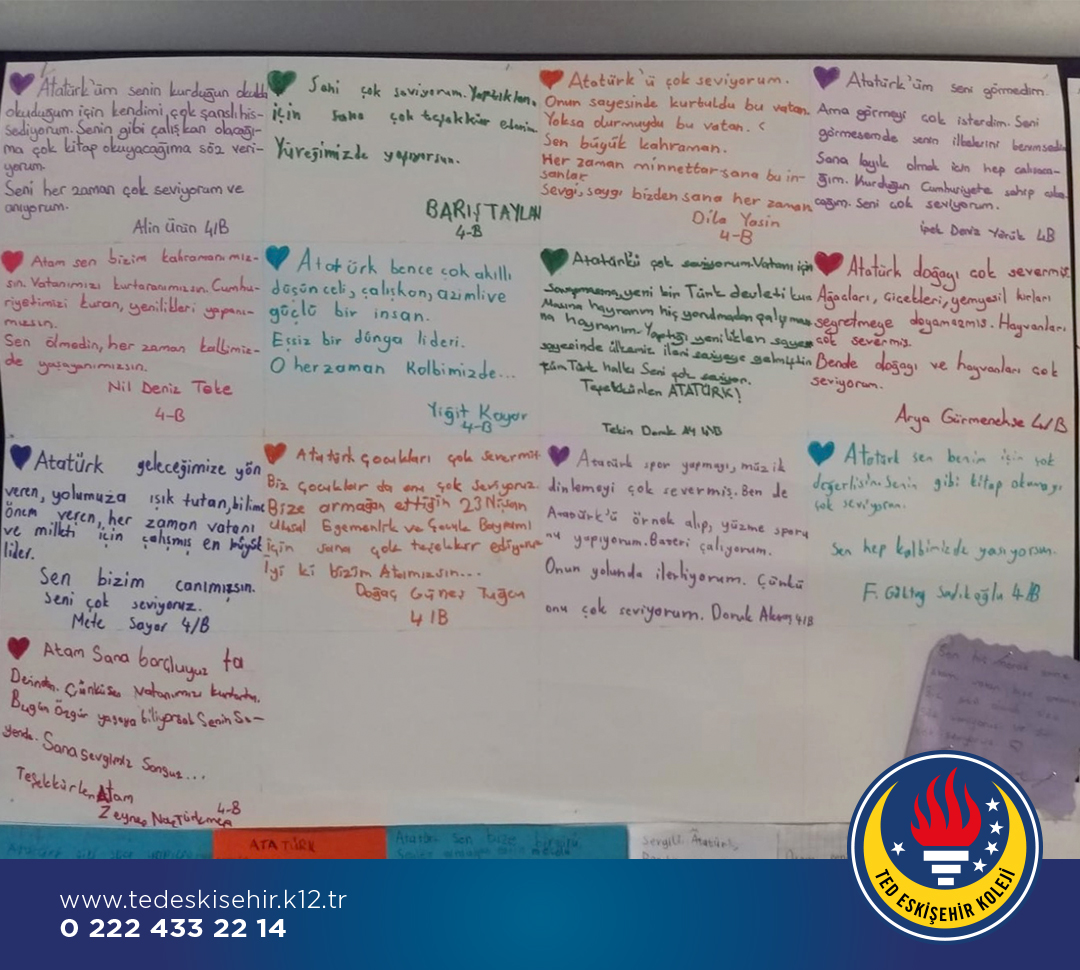 Atatürk'üm senin kurduğun okulda
okuduğum için kendimi çok şanslı his-
sediyorum. Senin gibi çalışkan olacağı-
ma çok kitap okuyacağıma söz veri-
yorum.
Seni her zaman çok seviyorum ve
anıyorum.
Alin Ünün 4/B
Seni çok seviyorum. Yaptıkların
için sana çok teşekkür ederim.
Yüreğimizde yaşıyorsun.
BARIŞ TAYLAN
4-B
Atatürk'ü çok seviyorum.
Onun sayesinde kurtuldu bu vatan.
Yoksa durmuydu bu vatan.
Sen büyük kahraman.
Her zaman minnettar sana bu in-
sanlar
Sevgi, saygı bizden sana her zaman
Dila Yasin
4-B
Atatürk'üm seni görmedim.
Ama görmeyi çok isterdim. Seni
görmesemde senin ilkelerini benimsedim
Sana layık olmak için hep çalışaca-
ğım. Kurduğun Cumhuriyete sahip çıka-
cağım. Seni çok seviyorum.
İpek Deniz Yörük 4B
Atam sen bizim kahramanımız-
sın. Vatanımızı kurtaranımızsın. Cumhu-
riyetimizi kuran, yenilikleri yapanı-
mızsın.
Sen ölmedin, her zaman kalbimiz-
de yaşayanımızsın.
Nil Deniz Teke
4-B
Atatürk bence çok akıllı
düşünceli, çalışkan, azimli ve
güçlü bir insan.
Eşsiz bir dünya lideri.
O her zaman kalbimizde...
Yiğit Kayar
4-B
Atatürkü çok seviyorum. Vatanı için
savaşmasına, yeni bir Türk devleti kur
Masına hayranım hiç yorulmadan çalışması
na hayranım. Yaptığı yenilikleri
sayesinde ülkemiz ileri seviyeye gelmiştir
tüm Türk halkı Seni çok seviyor.
Teşekkürler ATATÜRK!
Tekin Doruk AY 4/B
Atatürk doğayı çok severmiş
Ağaçları, çiçekleri, yemyeşil kırları
seyretmeye doyamazmış. Hayvanları
çok severmiş.
Bende doğayı ve hayvanları çok
seviyorum.
Arya Görmenekşe 4/B
Atatürk geleceğimize yön
veren, yolumuza ışık tutan, bilime
önem veren, her zaman vatanı
ve milleti için çalışmış en büyük
lider.
Sen bizim canımızsın.
Seni çok seviyoruz.
Mete Sayar 4/B
Atatürk çocukları çok severmiş
Biz çocuklar da onu çok seviyoruz.
Bize armağan ettiğin 23 Nisan
Ulusal Egemenlik ve Çocuk Bayramı
için sana çok teşekkür ediyoruz
İyi ki bizim Atamızsın...
Doğaç Güneş Tuğcu
4/B
Atatürk spor yapmayı, müzik
dinlemeyi çok severmiş. Ben de
Atatürk'ü örnek alıp, yüzme sporu
nu yapıyorum. Bateri çalıyorum.
Onun yolunda ilerliyorum. Çünkü
onu çok seviyorum. Doruk 4/B
Atatürk sen benim için çok
değerlisin. Senin gibi kitap okumayı
çok seviyorum.
Sen hep kalbimizde yaşıyorsun.
F. Göktuğ Sadıkoğlu 4/B
Atam Sana borçluyuz ta
Derinden. Çünkü sen Vatanımızı kurtardın.
Bugün Özgür yaşaya biliyorsak Senin Sa-
yende. Sana sevgimiz Sonsuz...
Teşekkürler Atam
4-B
Zeynep Naz Türkmen
ATATÜRK
Atatürk sen bize
Sevgili Atatürk,
www.tedeskisehir.k12.tr
0 222 433 22 14
TED ESKİŞEHİR KOLEJİ